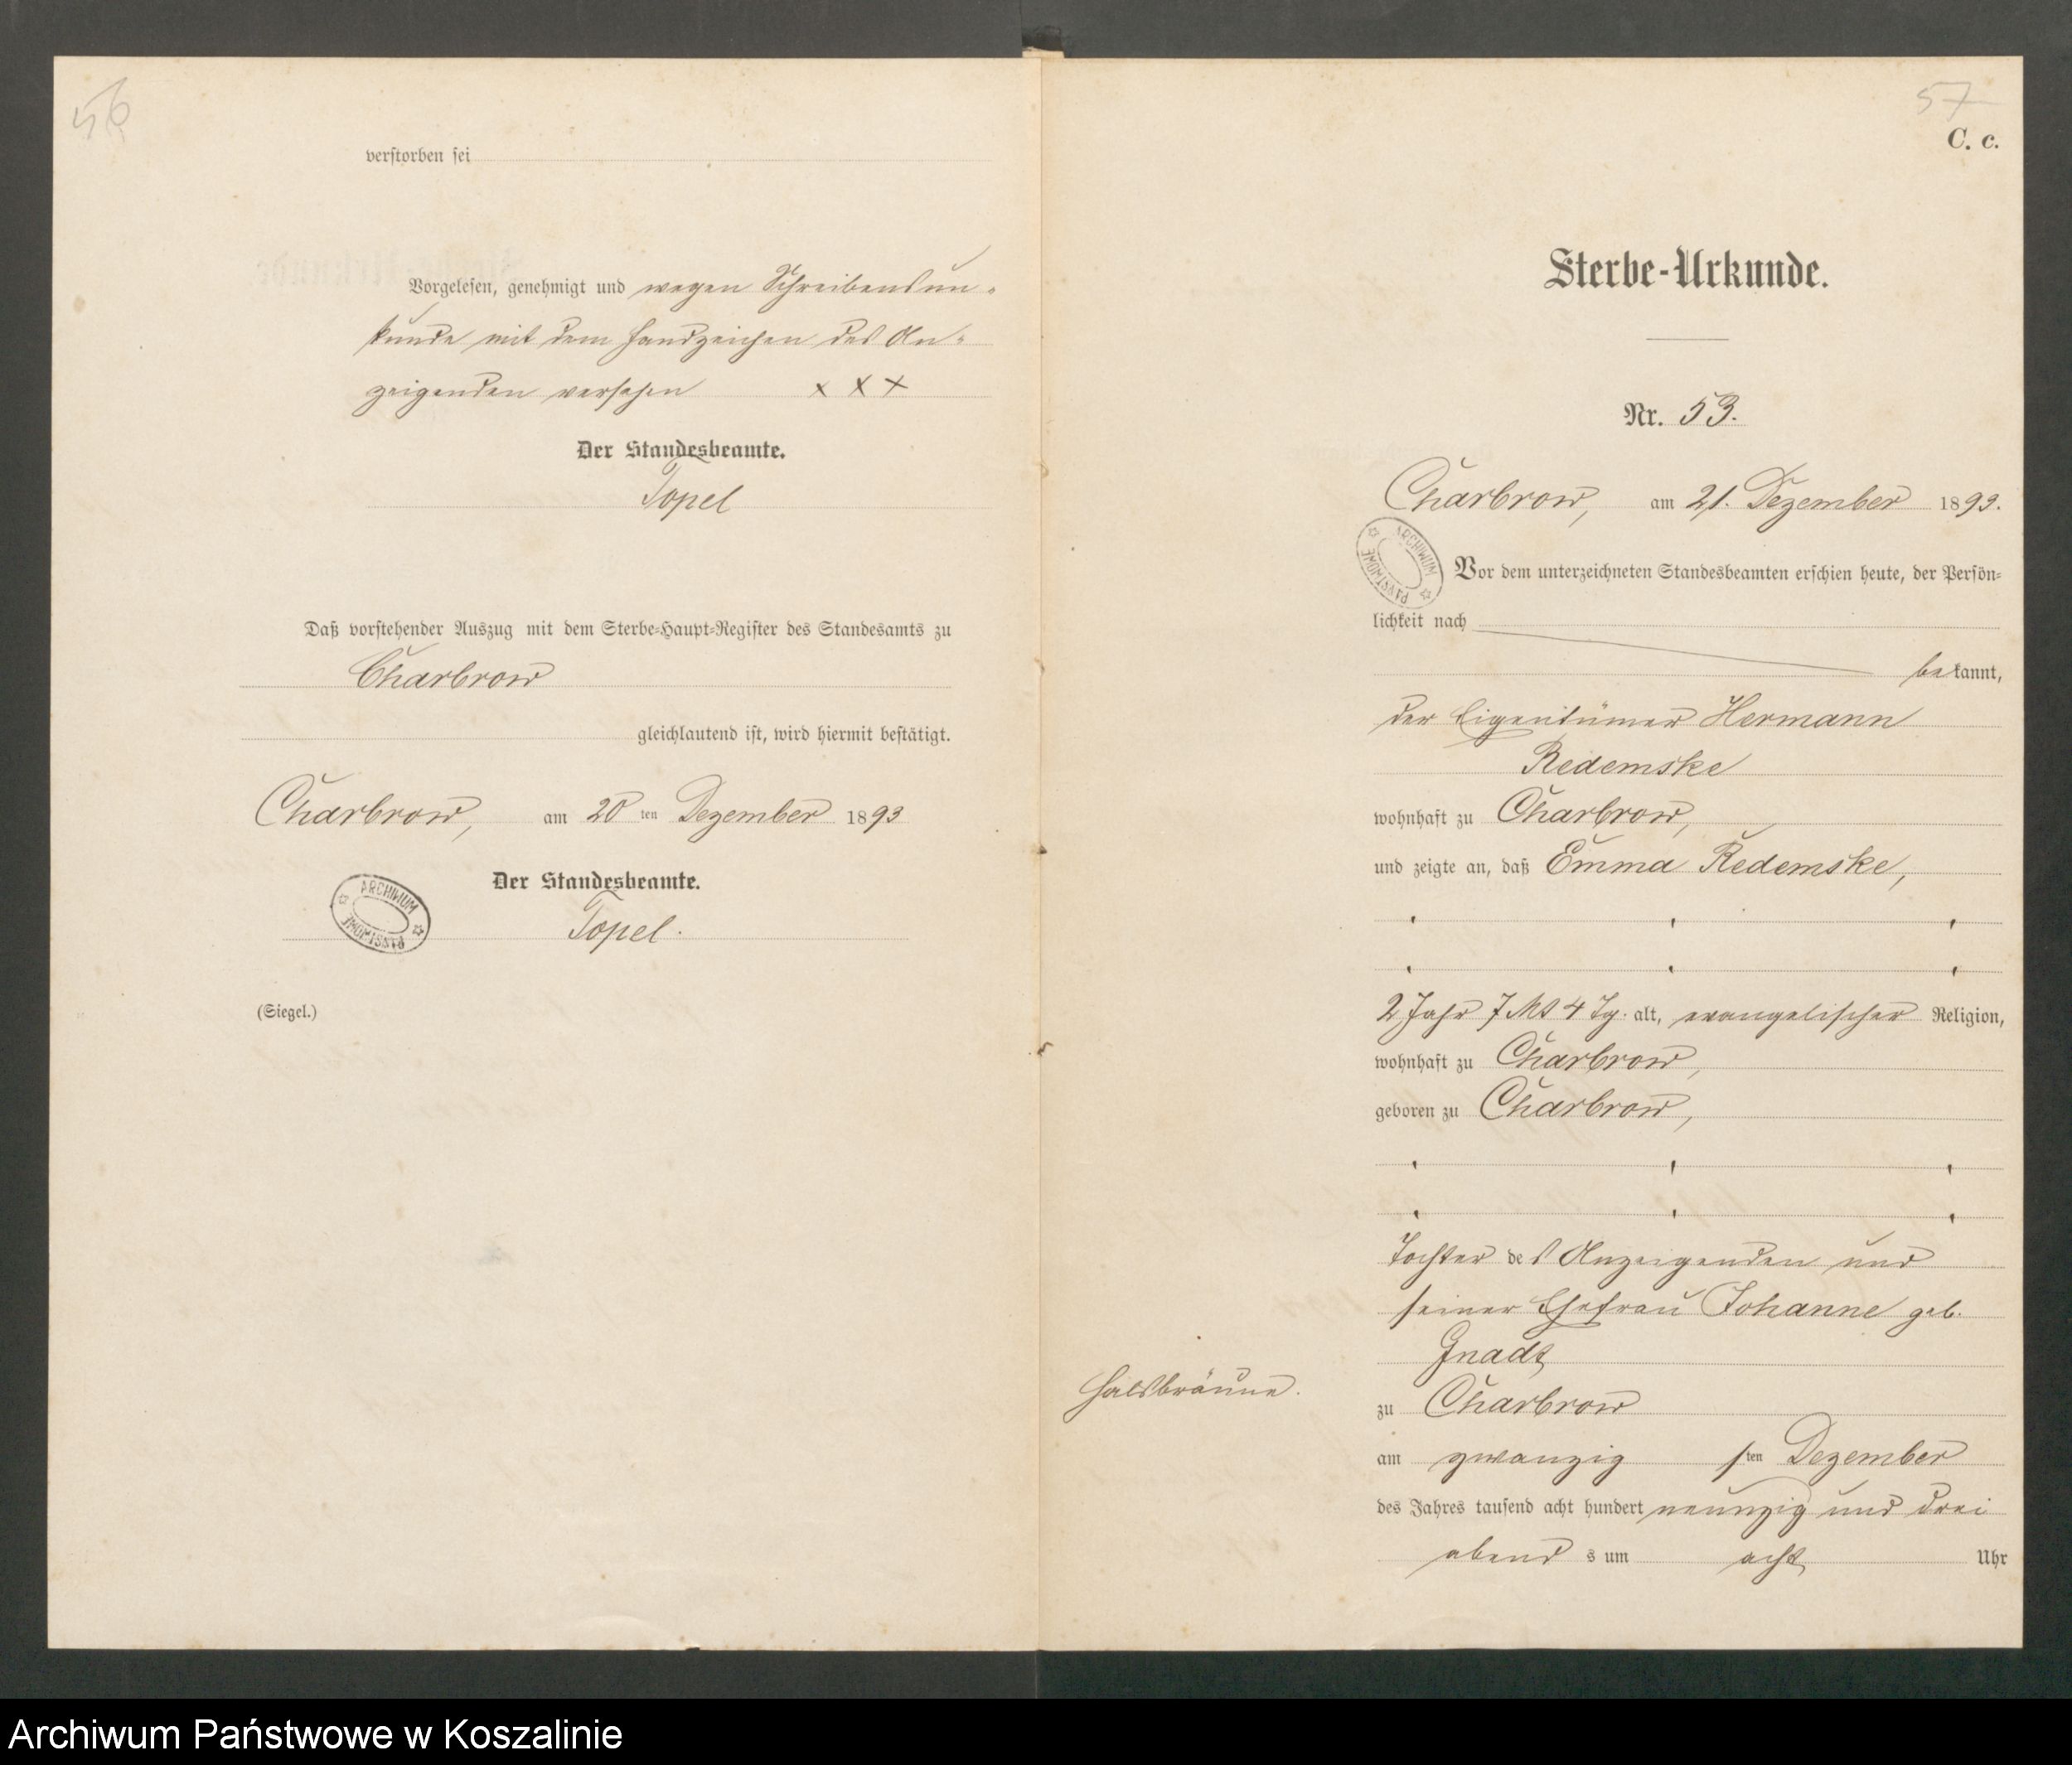 56
verstorben sei
Vorgelesen, genehmigt und wegen Schreibensun-
kunde mit dem Handzeichen des An-
zeigenden versehen x x x
Der Standesbeamte.
Topel
Daß vorstehender Auszug mit dem Sterbe-Haupt-Register des Standesamts zu
Charbrow
gleichlautend ist, wird hiermit bestätigt.
Charbrow, am 20ten Dezember 1893
Der Standesbeamte.
Topel.
ARCHIWUM PAŃSTWOWE
(Siegel.)
57
C. c.
Sterbe-Urkunde.
Nr. 53.
Charbrow, am 21. Dezember 1893.
ARCHIWUM PAŃSTWOWE
Vor dem unterzeichneten Standesbeamten erschien heute, der Persön-
lichkeit nach
bekannt,
der Eigentümer Hermann
Redemske
wohnhaft zu Charbrow,
und zeigte an, daß Emma Redemske,
2 Jahr 7 Mt 4 Tg. alt, evangelischer Religion,
wohnhaft zu Charbrow,
geboren zu Charbrow,
Tochter des Anzeigenden und
seiner Ehefrau Johanne geb.
Gnadt
Halsbräune.
zu Charbrow
am zwanzigsten Dezember
des Jahres tausend acht hundert neunzig und drei
abends um acht Uhr
Archiwum Państwowe w Koszalinie